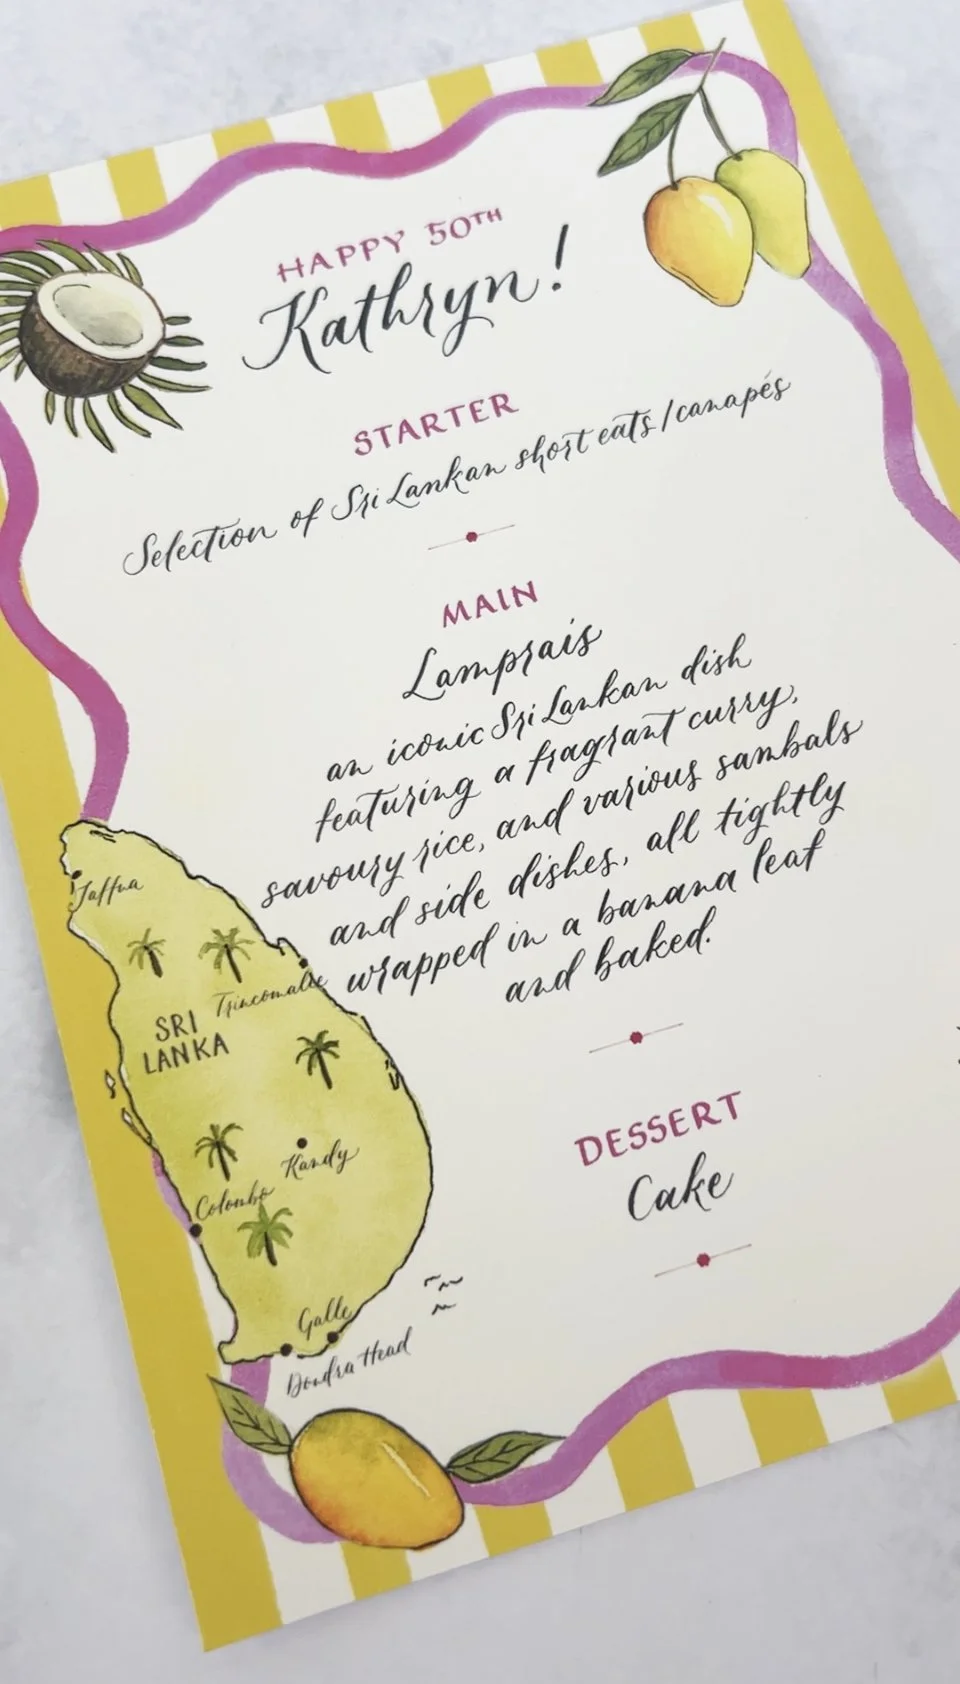 HAPPY 50TH
Kathryn!
STARTER
Selection of Sri Lankan short eats/canapés
MAIN
Lamprais
an iconic Sri Lankan dish
featuring a fragrant curry,
savoury rice, and various sambals
and side dishes, all tightly
wrapped in a banana leaf
and baked.
DESSERT
Cake
Jaffna
Trincomalie
SRI
LANKA
Kandy
Colombo
Galle
Dondra Head